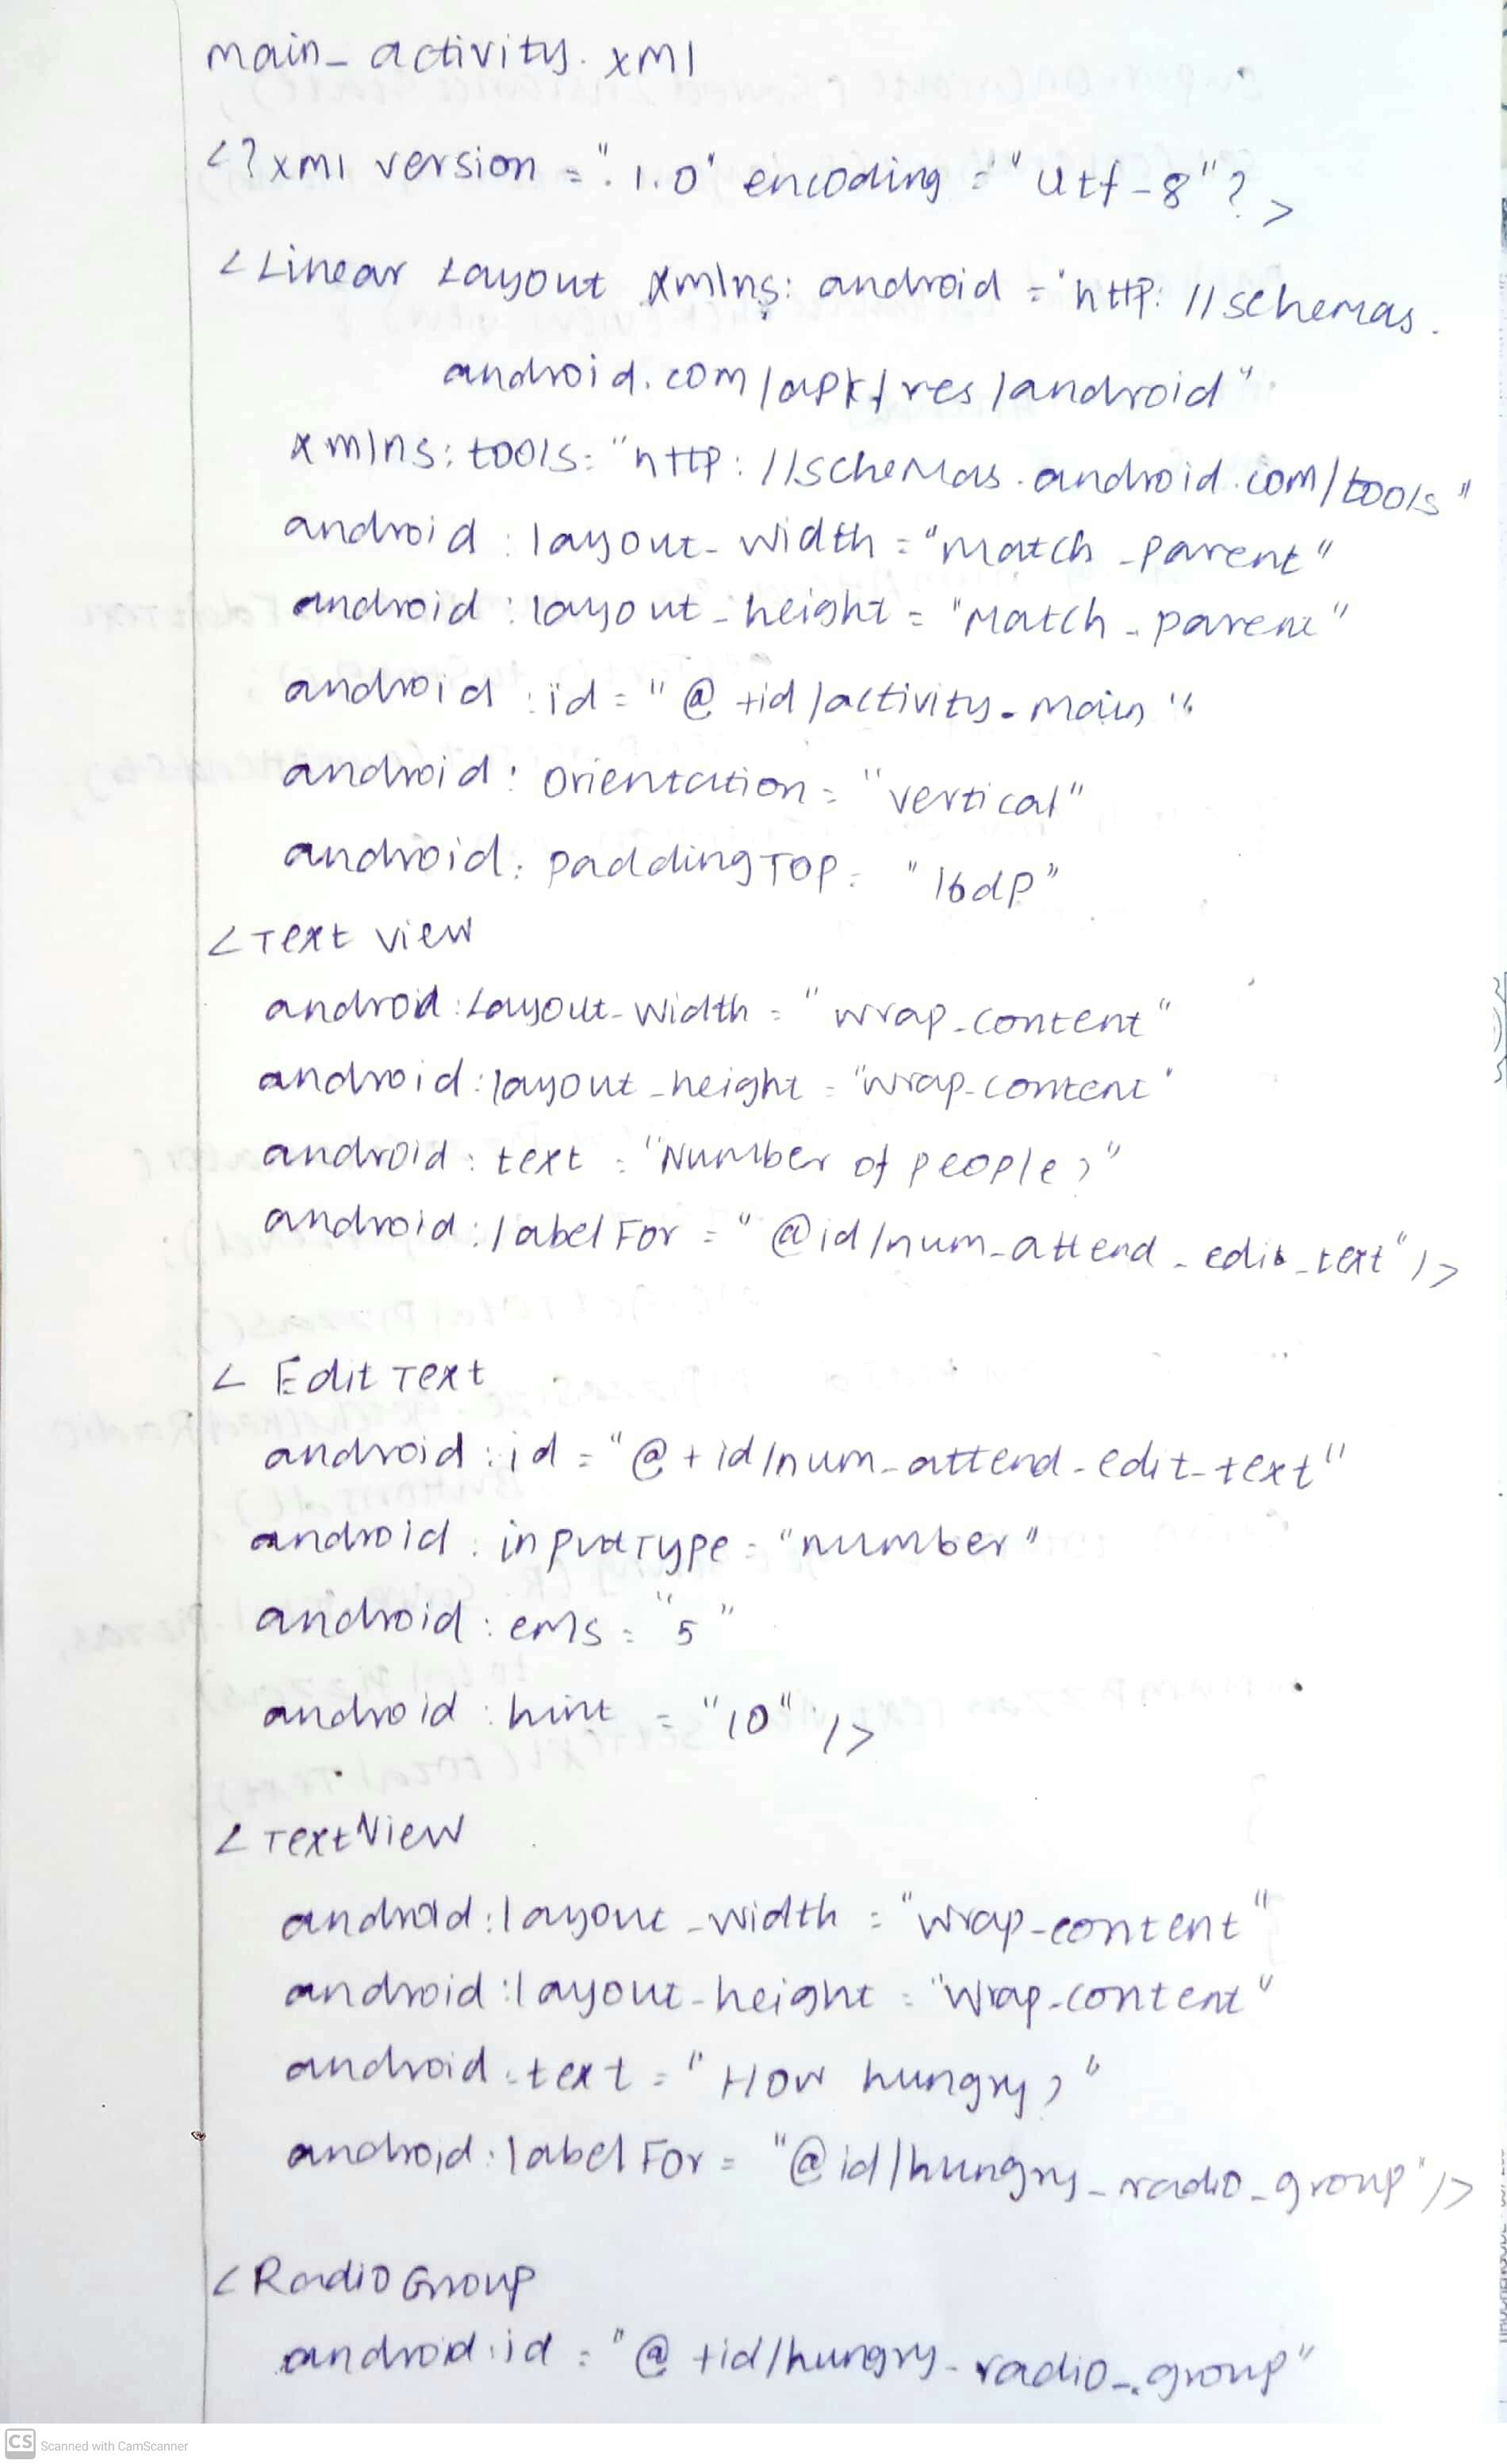 main_activity.xml
<?xml version=".1.0" encoding="utf-8"?>
<Linear Layout xmlns:android="http://schemas.
android.com/apk/res/android"
xmlns:tools="http://schemas.android.com/tools"
android:layout_width="match_parent"
android:layout_height="match_parent"
android:id="@+id/activity_main"
android:orientation="vertical"
android:paddingTop="16dp"
<Text View
android:layout_width="wrap_content"
android:layout_height="wrap_content"
android:text="Number of people?"
android:labelFor="@id/num_attend_edit_text"/>
<Edit Text
android:id="@+id/num_attend_edit_text"
android:inputType="number"
android:ems="5"
android:hint="10"/>
<TextView
android:layout_width="wrap_content"
android:layout_height="wrap_content"
android:text="How hungry?"
android:labelFor="@id/hungry_radio_group"/>
<RadioGroup
android:id="@+id/hungry_radio_group"
CS Scanned with CamScanner